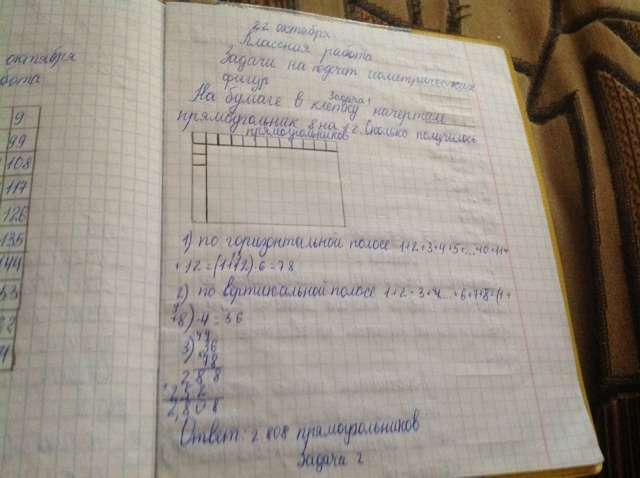 октября
бота
9
99
108
117
126
135
144
22 октября
Классная работа
Задачи на подсчет геометрических
фигур
Задача 1
На бумаге в клетку начертили
прямоугольник 8 на 12. Сколько получилось
прямоугольников
1) по горизонтальной полосе 1+2+3+4+5+...+10+11+
+12=(1+12)·6=78
2) по вертикальной полосе 1+2+3+4...+6+7+8=(1+
+8)·4=36
3) 36
78
288
252
2808
Ответ: 2 808 прямоугольников
Задача 2